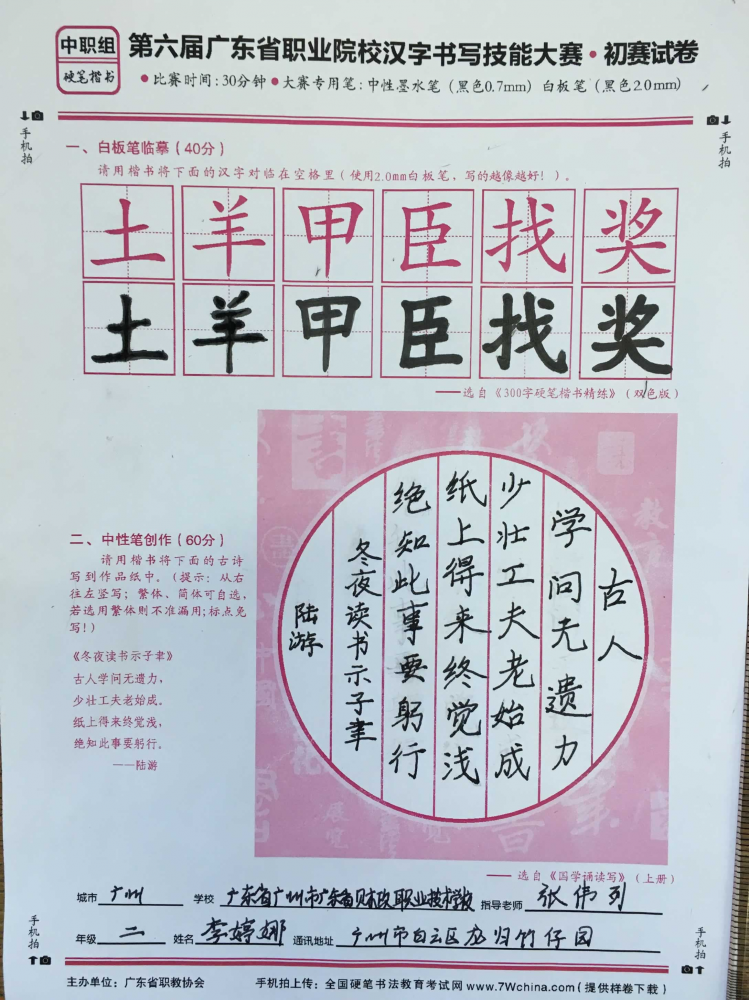 中职组
硬笔楷书
第六届广东省职业院校汉字书写技能大赛·初赛试卷
●比赛时间:30分钟●大赛专用笔:中性墨水笔(黑色0.7mm) 白板笔(黑色2.0mm)
手机拍
手机拍
一、白板笔临摹(40分)
请用楷书将下面的汉字对临在空格里(使用2.0mm白板笔,写的越像越好!)。
土羊甲臣找奖
土羊甲臣找奖
——选自《300字硬笔楷书精练》(双色版)
二、中性笔创作(60分)
请用楷书将下面的古诗
写到作品纸中。(提示:从右
往左竖写;繁体、简体可自选,
若选用繁体则不准漏用;标点免
写!)
《冬夜读书示子聿》
古人学问无遗力,
少壮工夫老始成。
纸上得来终觉浅,
绝知此事要躬行。
——陆游
古人
学问无遗力
少壮工夫老始成
纸上得来终觉浅
绝知此事要躬行
冬夜读书示子聿
陆游
——选自《国学诵读写》(上册)
城市 广州 学校 广东省广州市广东省财政职业技术学校 指导老师 张伟列
年级 二 姓名 李婷娜 通讯地址 广州市白云区龙归竹仔园
手机拍
手机拍
主办单位:广东省职教协会 手机拍上传:全国硬笔书法教育考试网 www.7Wchina.com(提供样卷下载)